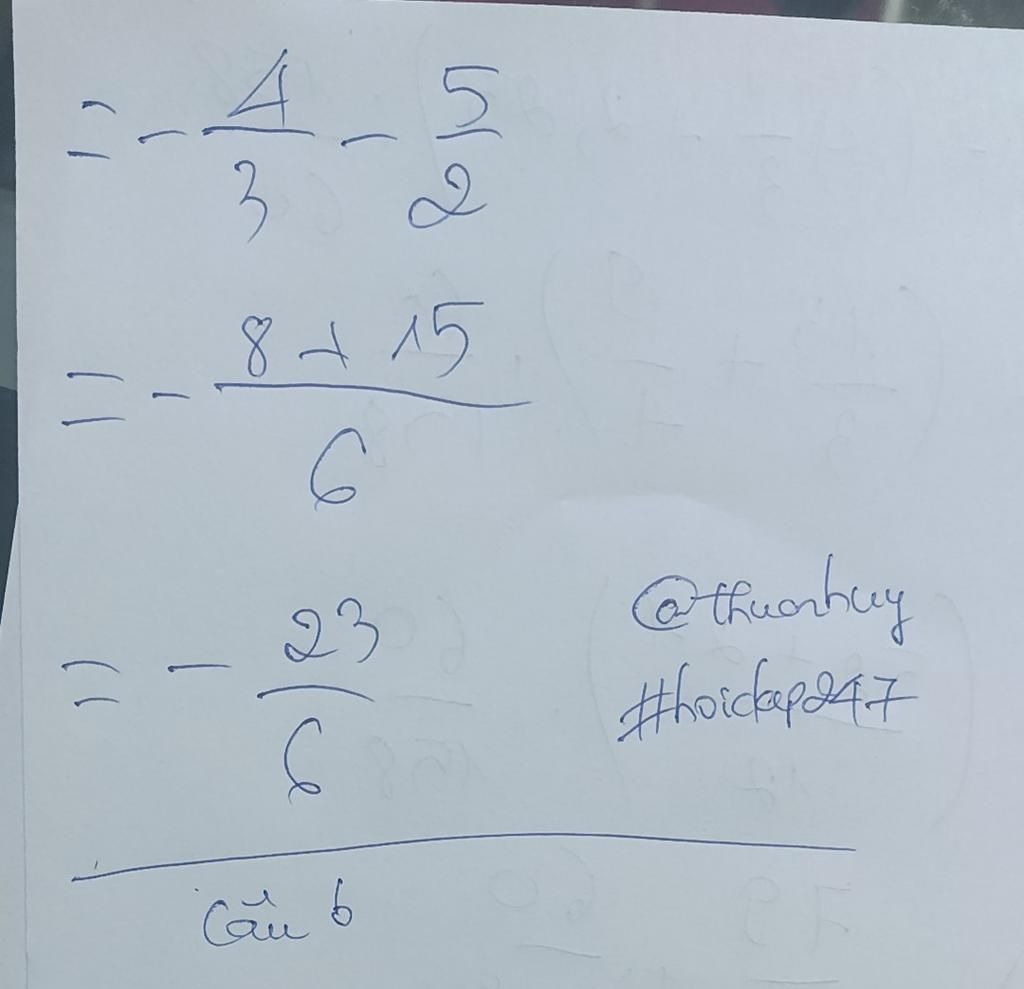 = - 4/3 - 5/2
= - (8 + 15)/6
= - 23/6
@thuonhuy
#hoidap247
Câu b